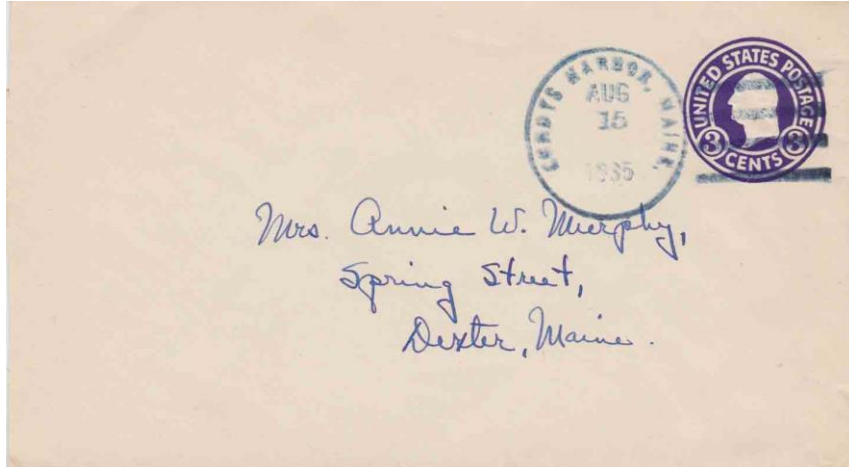 CUNDYS HARBOR, MAINE.
AUG
15
1935
UNITED STATES POSTAGE
3 CENTS 3
Mrs. Annie W. Murphy,
Spring Street,
Dexter, Maine.